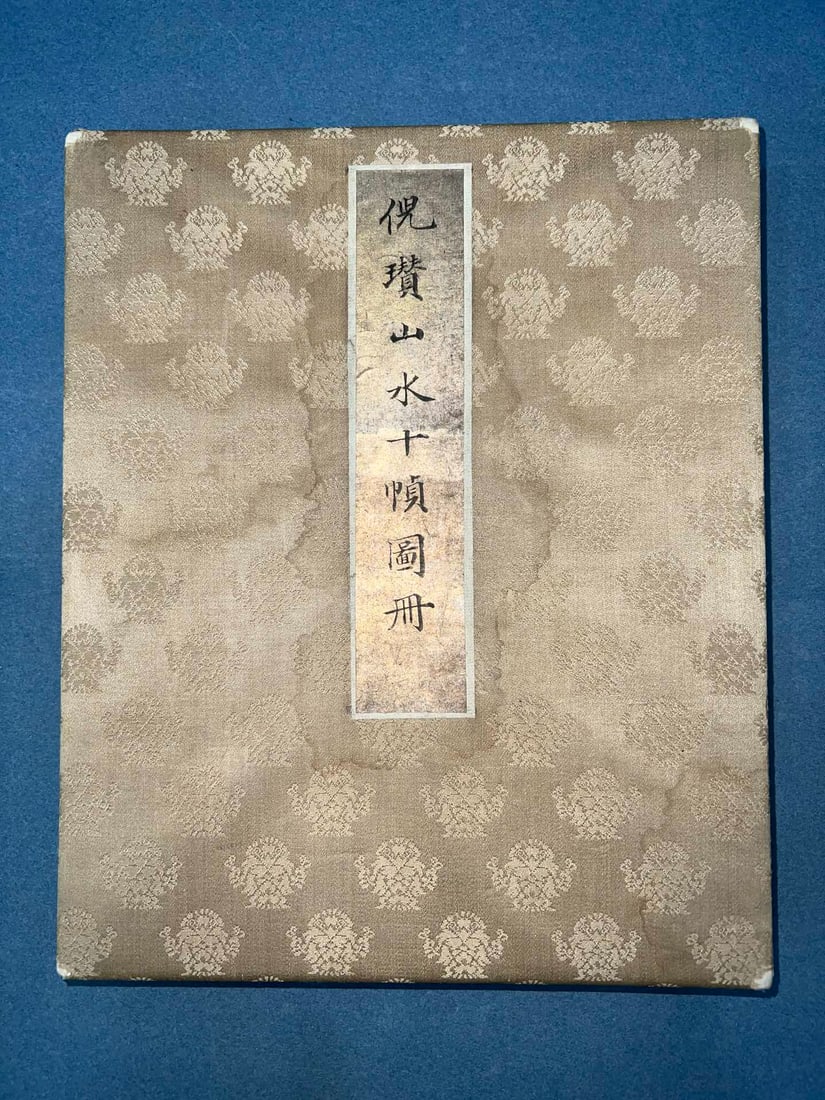 倪瓚山水十幀圖冊